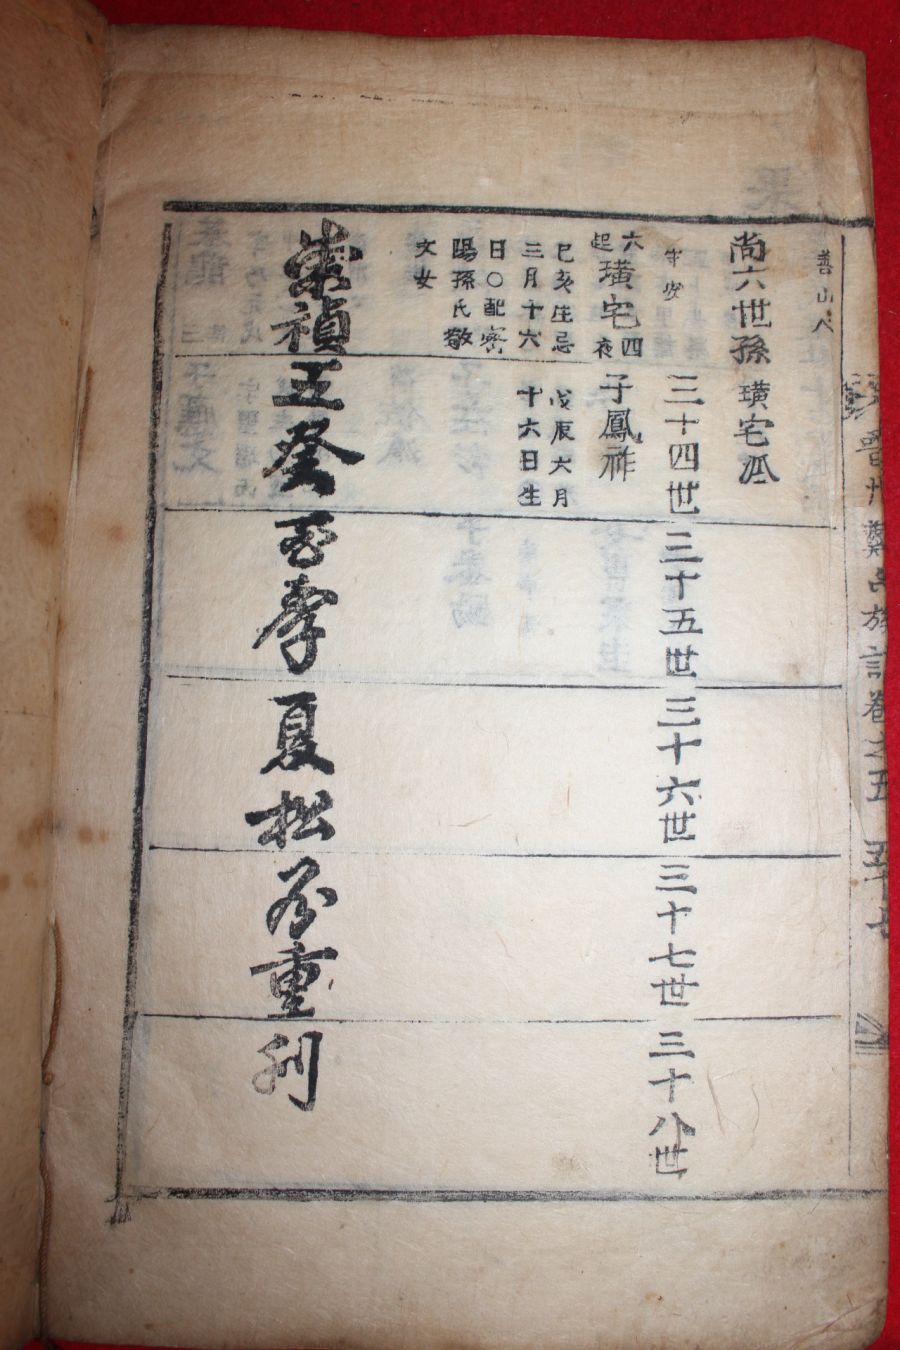 晉州鄭氏族譜卷之五 五十七
善山人
尚六世孫 璜宅派
三十四世 三十五世 三十六世 三十七世 三十八世
璜宅
子鳳祚
己亥生忌
三月十六
日○配密
陽孫氏敬
文女
戊辰六月
十六日生
崇禎五癸酉季夏松谷重刊